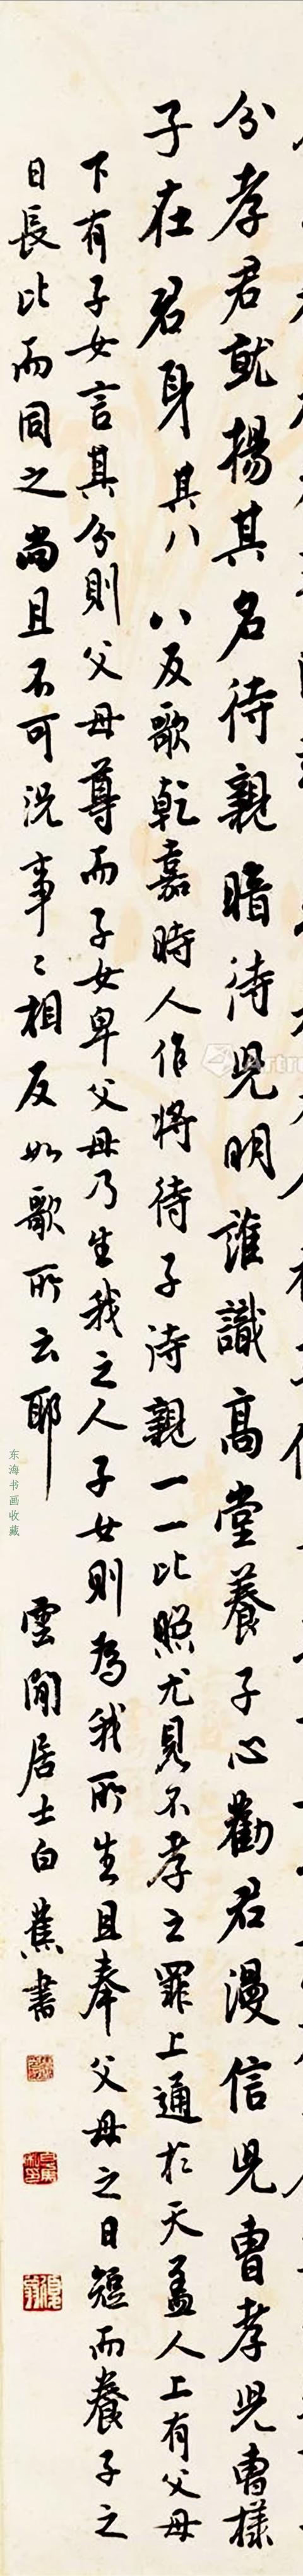 分孝君就揚其名待親暗待兒明誰識高堂養子心勸君漫信兒曹孝兒曹樣
子在君身其八 八反歌乾嘉時人作將待子待親一一比照尤見不孝之罪上通於天蓋人上有父母
下有子女言其分則父母尊而子女卑父母乃生我之人子女則為我所生且奉父母之日短而養子之
日長比而同之尚且不可況事々相反如歌所云耶 雲間居士白蕉書
东海书画收藏